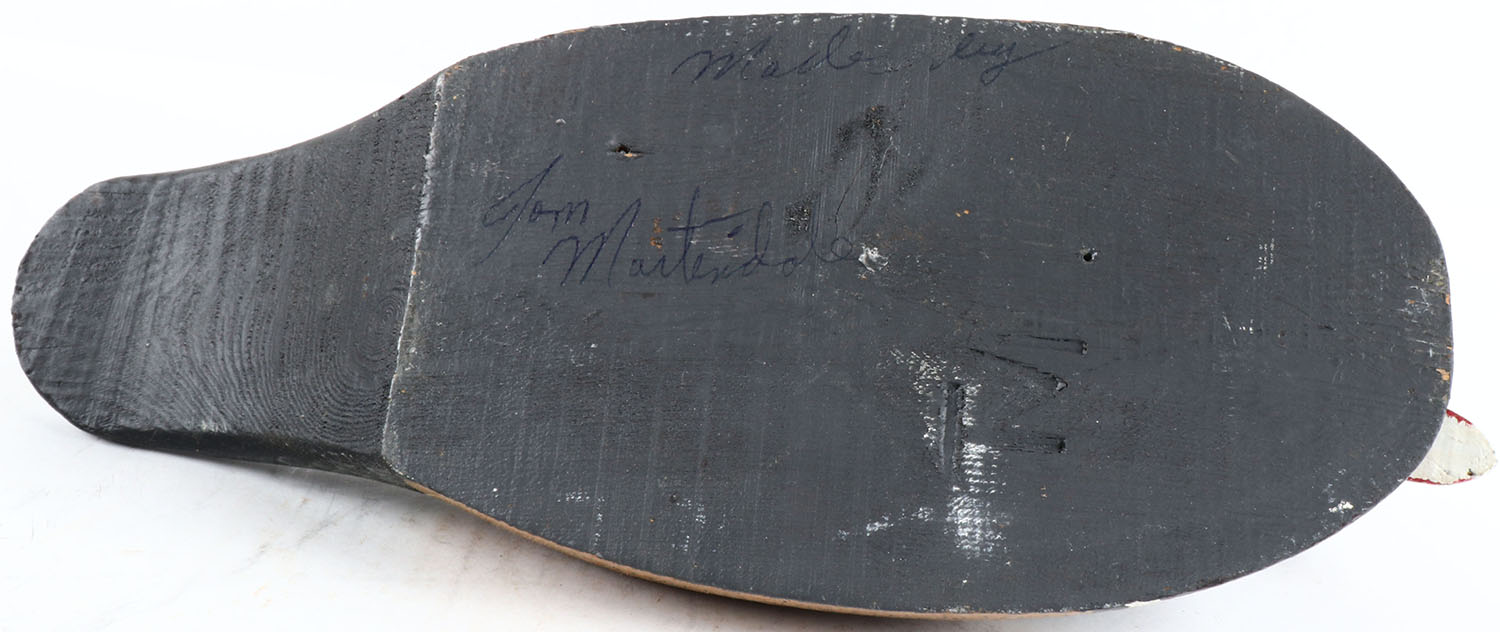 Made by
Tom
Martindale
TM